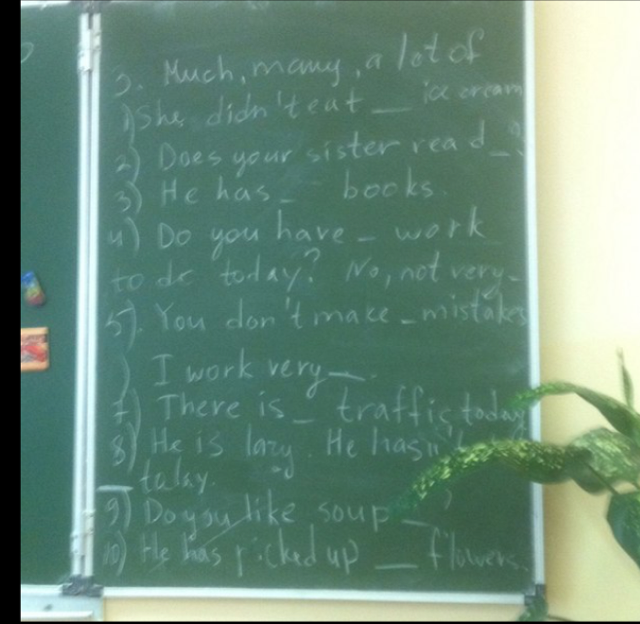 3. Much, many, a lot of
1) She didn't eat _ ice cream
2) Does your sister read _?
3) He has _ books.
4) Do you have _ work
to do today? No, not very _
5). You don't make _ mistakes
) I work very _.
7) There is _ traffic today
8) He is lazy. He hasn't
_ today.
9) Do you like soup _?
10) He has picked up _ flowers.